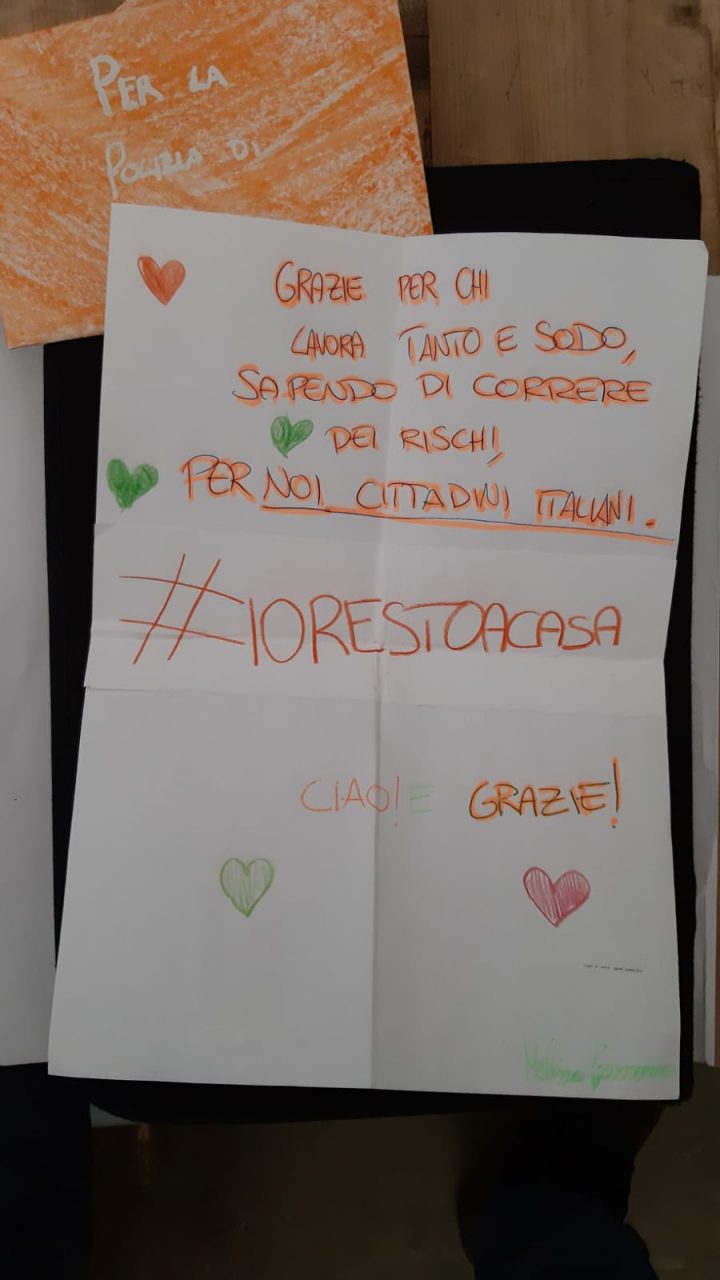 PER LA
POLIZIA DI
GRAZIE PER CHI
LAVORA TANTO E SODO,
SAPENDO DI CORRERE
DEI RISCHI,
PER NOI CITTADINI ITALIANI.
#IORESTOACASA
CIAO! E GRAZIE!